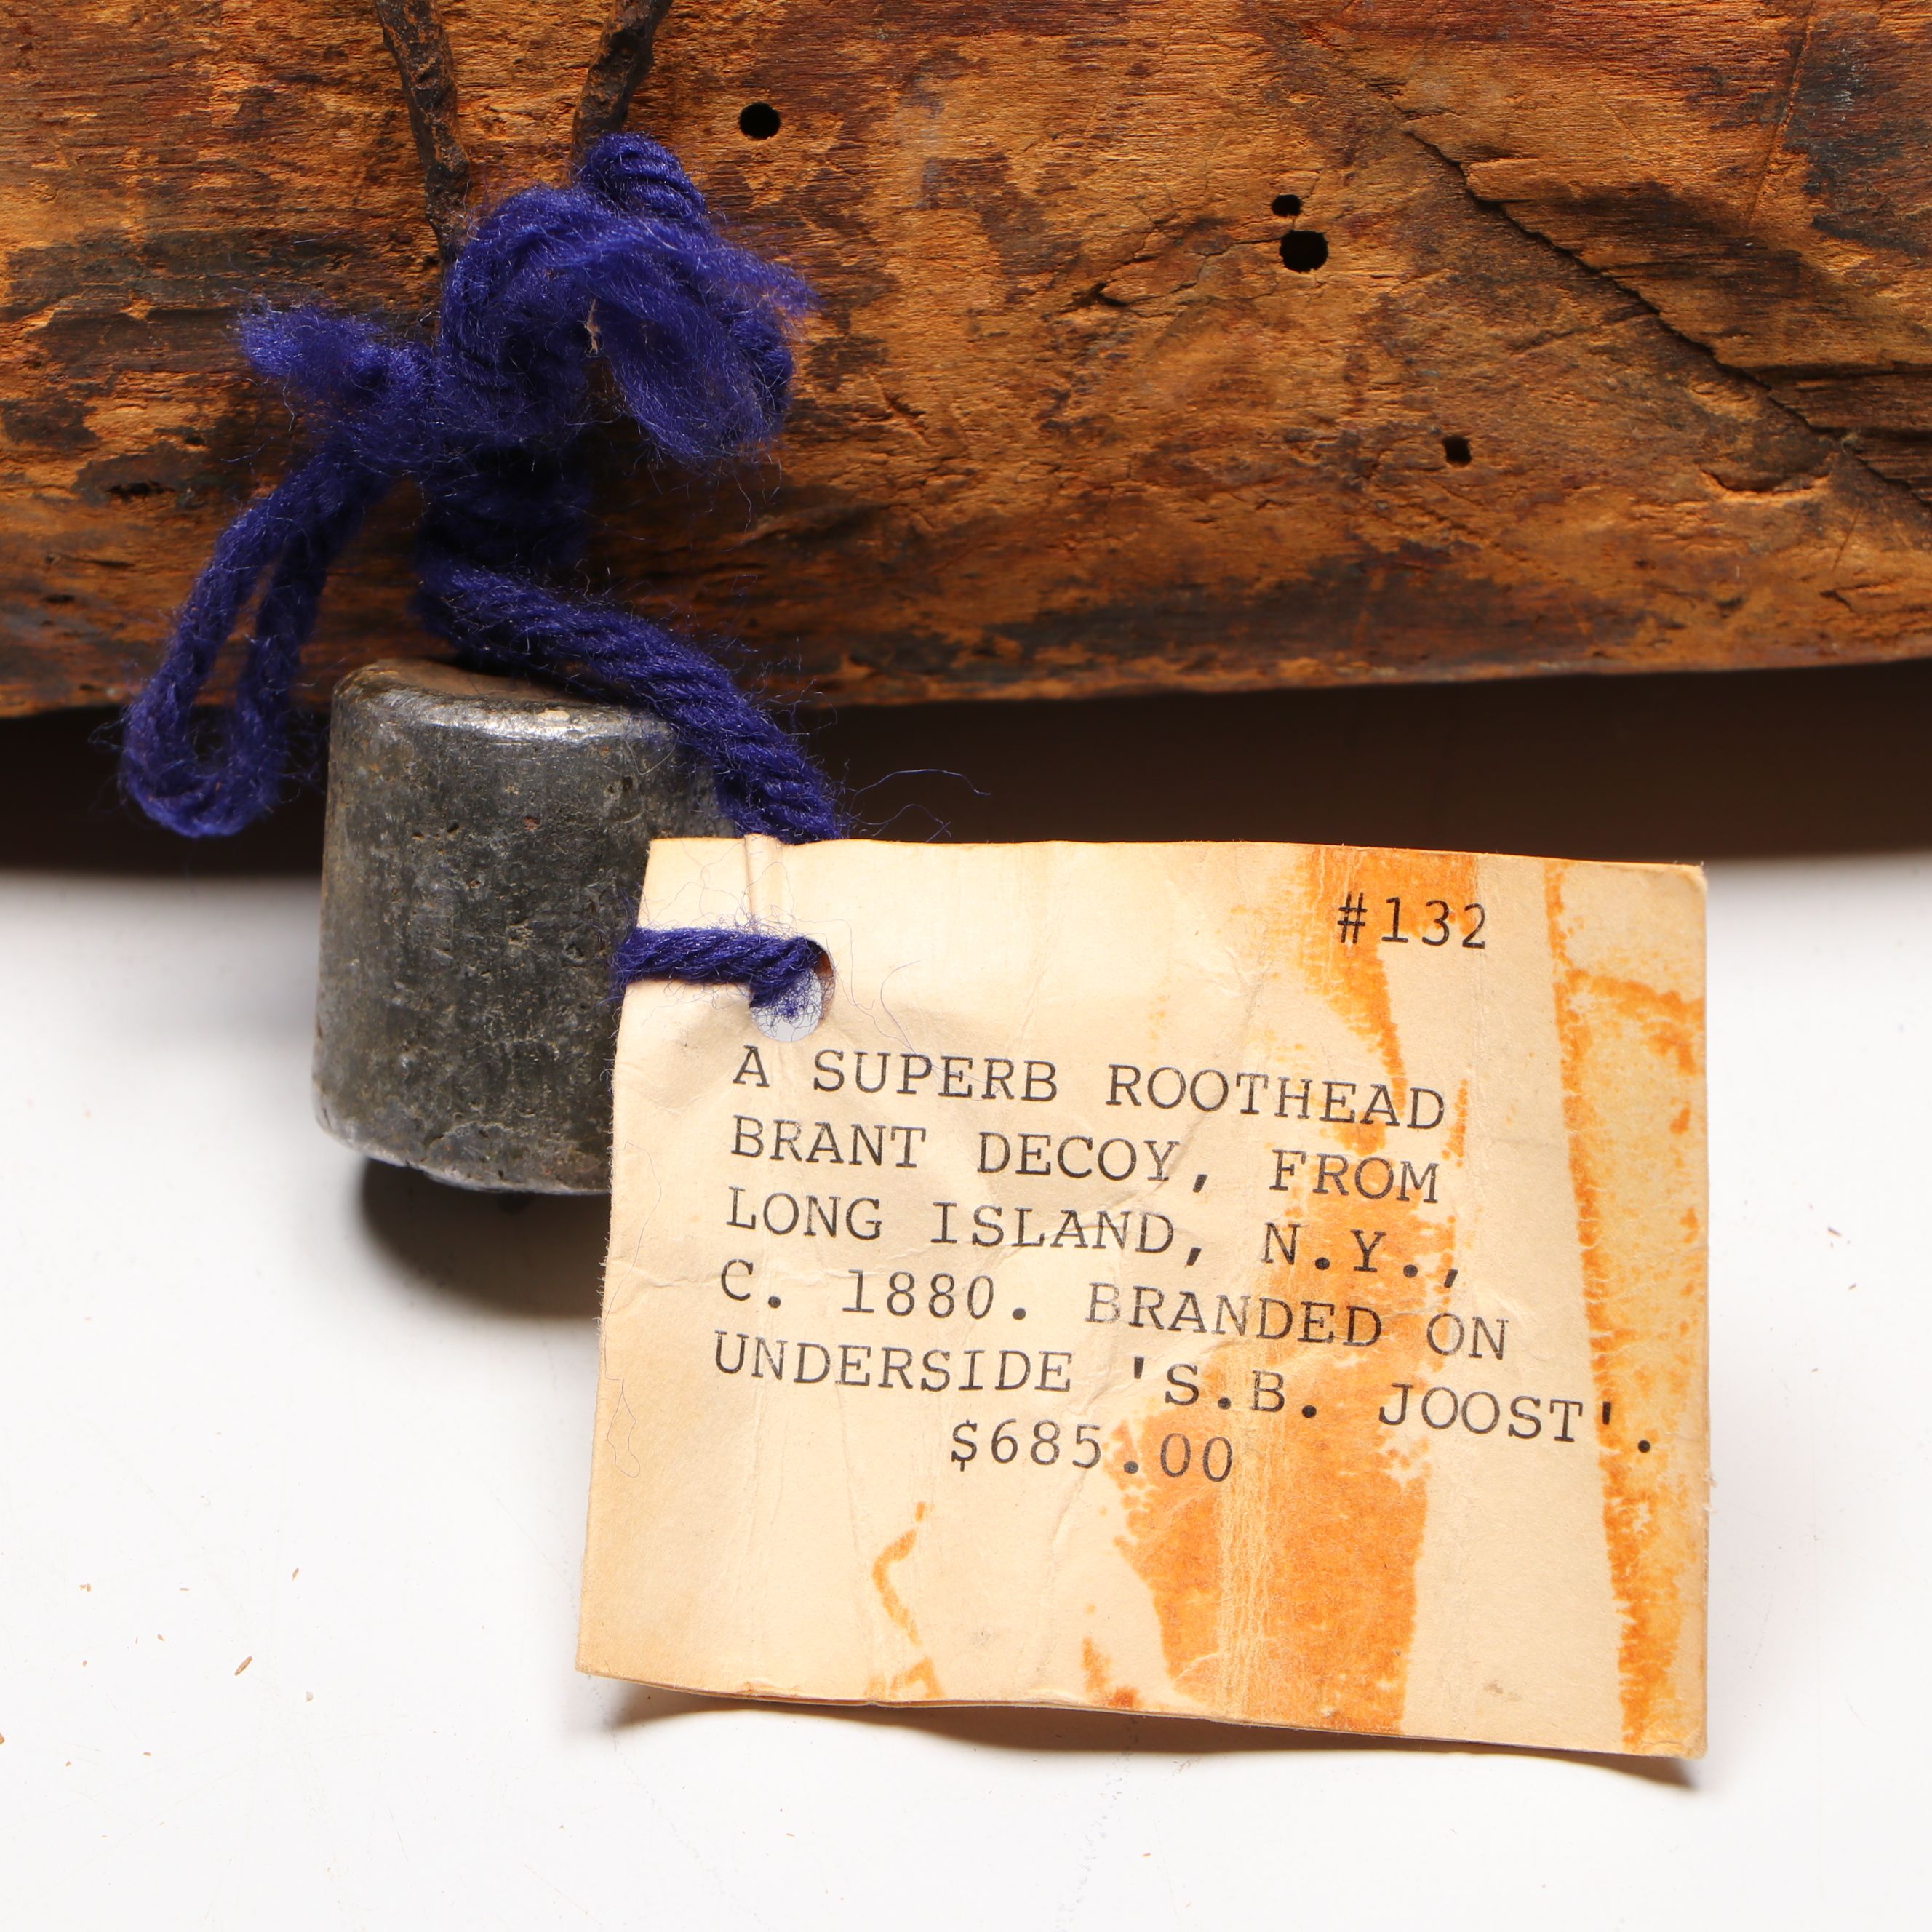 #132
A SUPERB ROOTHEAD
BRANT DECOY, FROM
LONG ISLAND, N.Y.,
C. 1880. BRANDED ON
UNDERSIDE 'S.B. JOOST'.
$685.00